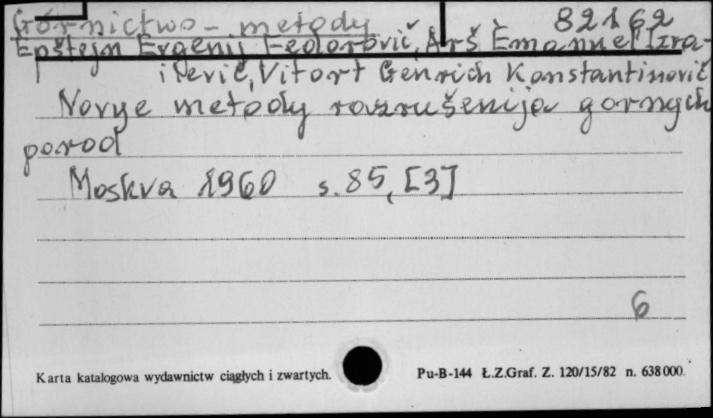 Górnictwo - metody 82162
Epštejn Evgenij Fedorovič, Arš Èmanuel Izra-
ilevič, Vitort Genrich Konstantinovič
Novye metody razrušenija gornych
porod
Moskva 1960 s. 85, [3]
6
Karta katalogowa wydawnictw ciągłych i zwartych. Pu-B-144 Ł.Z.Graf. Z. 120/15/82 n. 638 000.